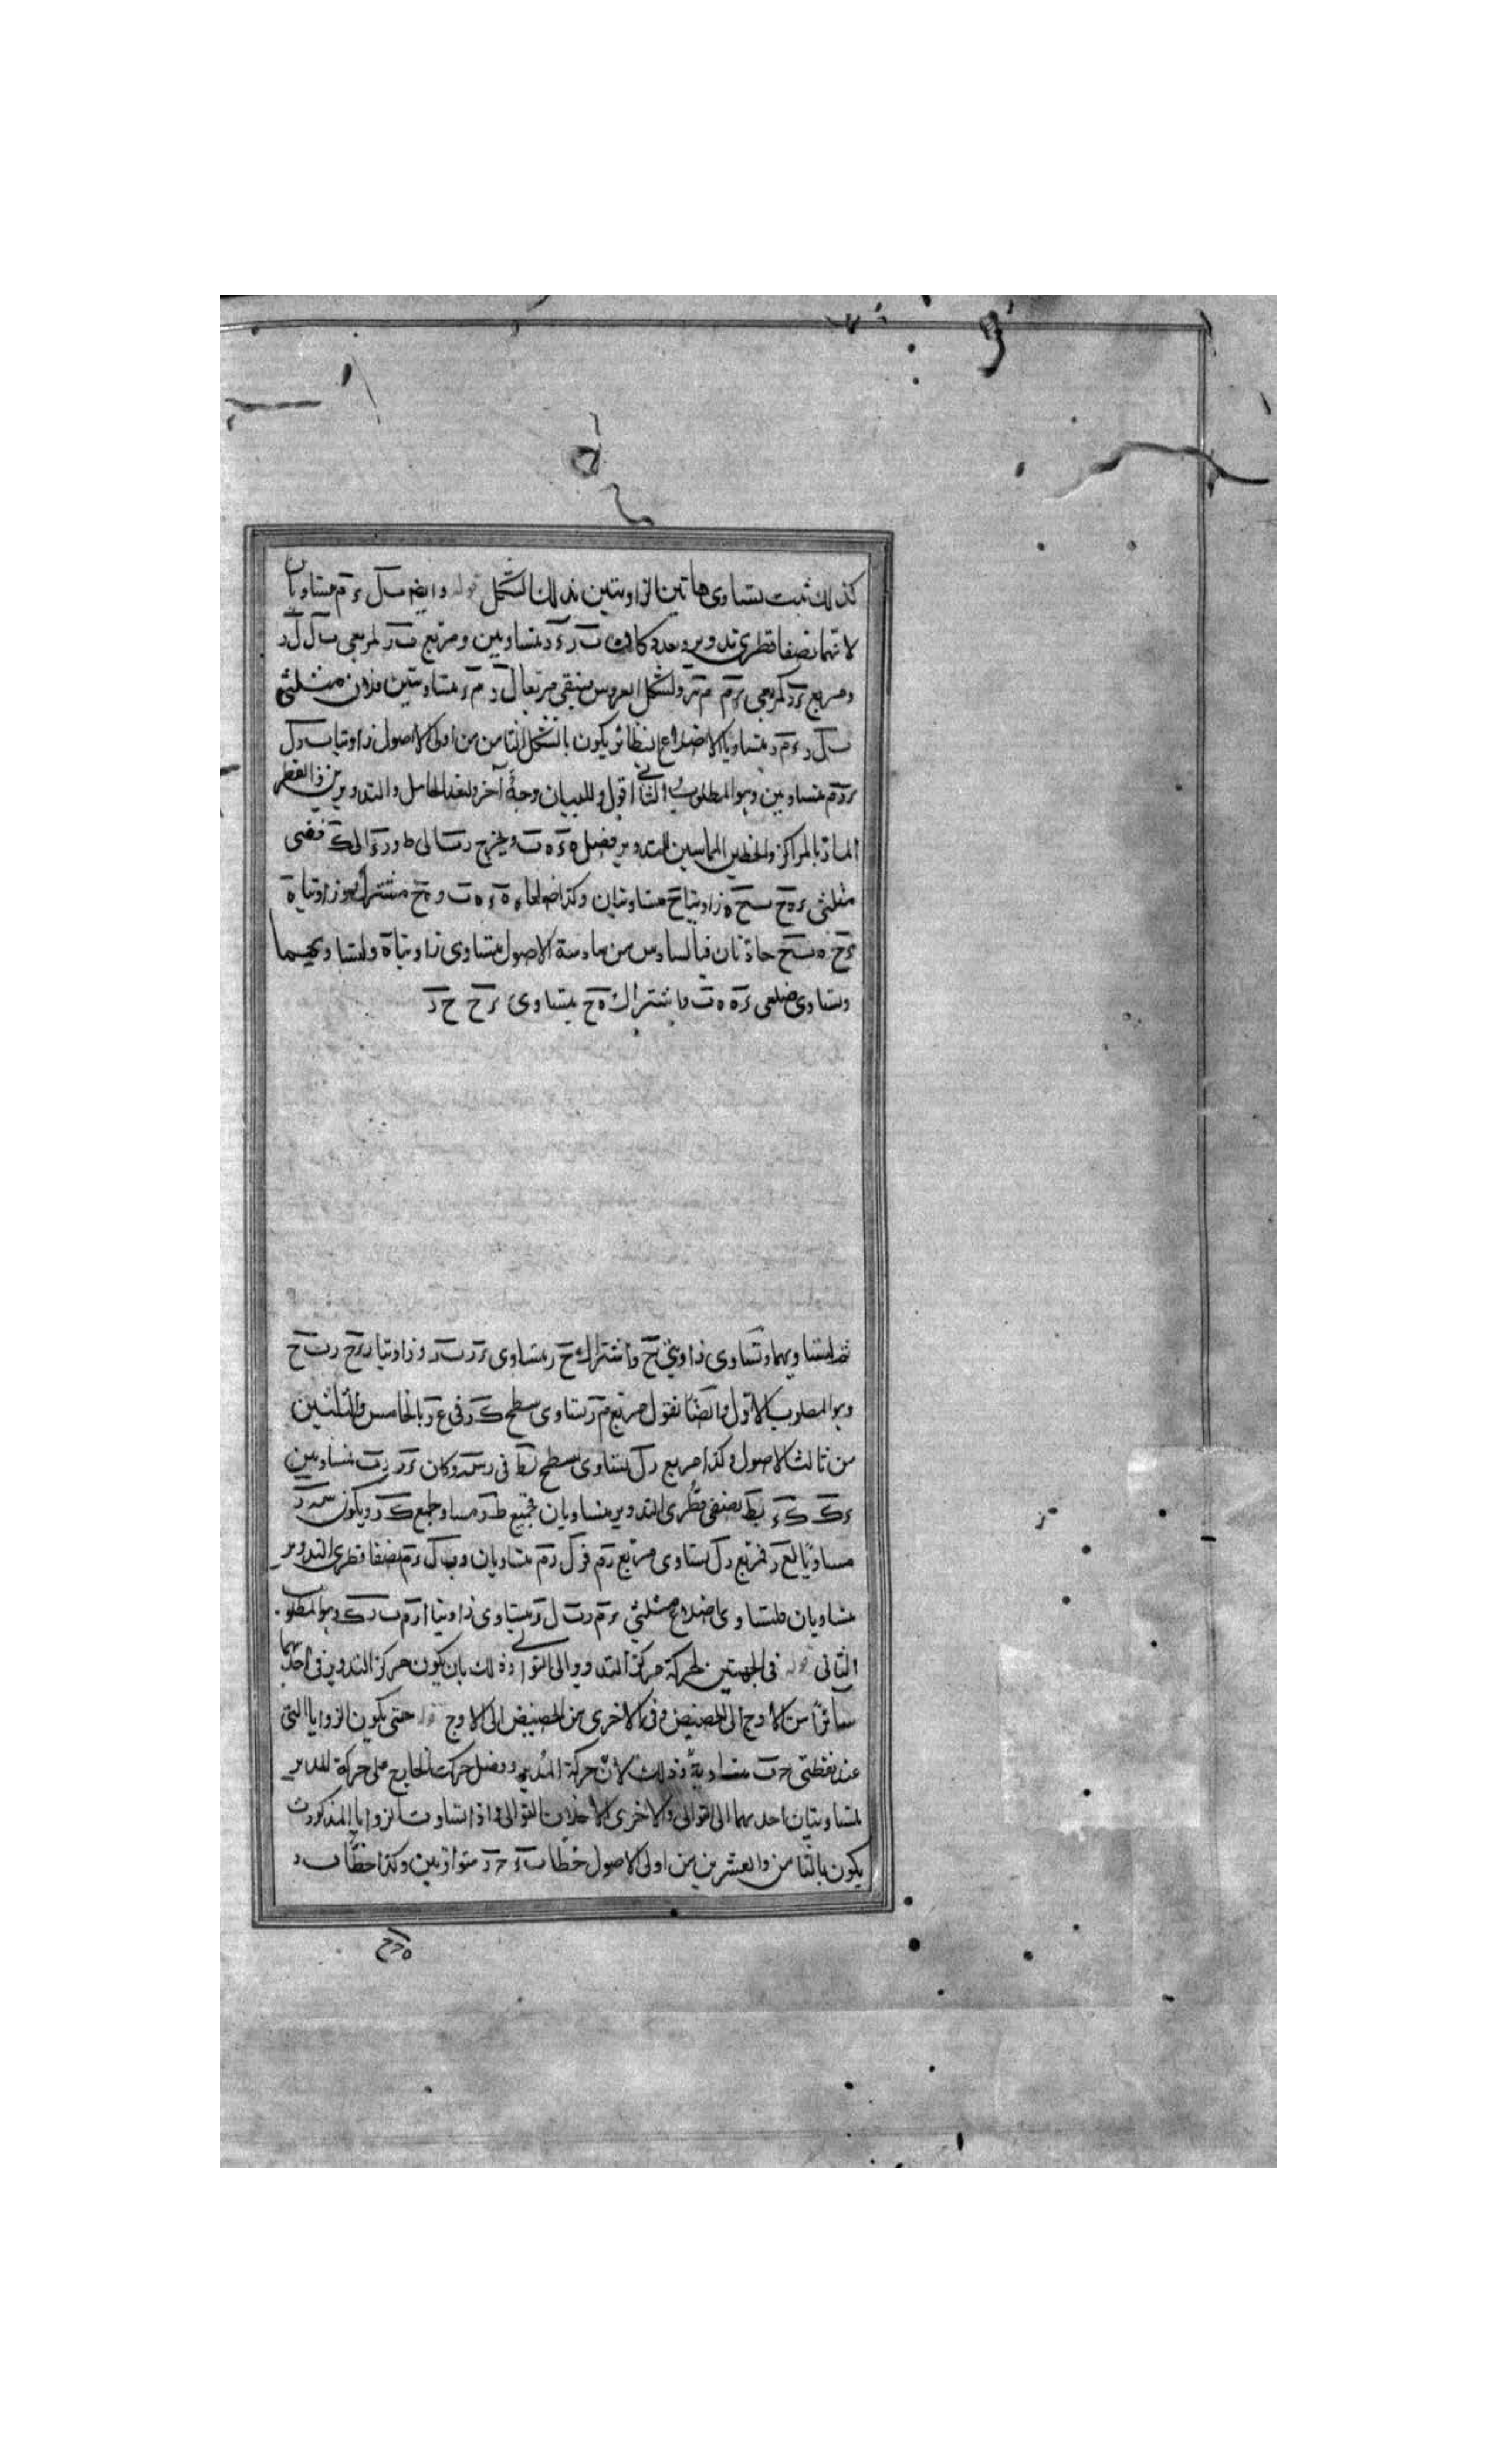 كذلك ثبت تساوى هاتين الزاويتين بذلك الشكل قوله وايضا ب ل ء م متساويان
لانهما نصفا قطرى تدوير وبعده كان ب ر ء ر متساويين ومربع ب ر كمربعى ب ل ل ر
ومربع ء ر كمربعى ء م م ر ولشكل العروس فيبقى مربعا ل ر م ر متساويين فلان مثلثى
ب ل ر ء م ر متساويا الاضلاع النظائر يكون بالشكل الثامن من اولى الاصول زاويتا ب ر ل
ء ر م متساويين وهو المطلوب الثانى اقول وللبيان وجه آخر ولنعد الحامل والتدويرين والقطر
المارّ بالمراكز والخطين المماسين للتدوير فصل ه ء ه ب ويخرج ر ب الى ط و ر ء الى ك ففى
مثلثى ء ه ح ب ح ه زاويتا ح متساويتان وكذا ضلعا ه ء ه ب و ه ح مشترك وزاويتا ه
ء ح ه ب ح حادتان فبالسادس من سادسة الاصول يتساوى زاويتا ه ولتساويهما
وتساوى ضلعى ء ه ه ب واشتراك ه ح يتساوى ء ح ح ب
ثم لتساويهما وتساوى زاويتى ح واشتراك ح ر يتساوى ء ر ب ر وزاويتا ر ء ح ر ب ح
وهو المطلوب الاول وايضا نقول مربع م ر يساوى سطح ك ر فى ع ر بالخامس والثلثين
من ثالثة الاصول وكذا مربع ر ل يساوى سطح ر ط فى ر س وكان ء ر ر ب متساويين
ء ك ب ط نصفى قطرى التدوير متساويان فجميع ط ر مساو لجميع ك ر ويكون س ر
مساويًا لع ر فمربع ر ل يساوى مربع ر م فر ل ر م متساويان وب ل ء م نصفا قطرى التدوير
متساويان فلتساوى اضلاع مثلثى ء م ر ب ل ر يتساوى زاويتا ء ر م ب ر ل وهو المطلوب
الثانى قوله فى الجهتين لحركة مركز التدوير الى التوالى وذلك بان يكون مركز التدوير فى احديهما
سائرًا من الاوج الى الحضيض وفى الاخرى من الحضيض الى الاوج قوله حتى يكون الزوايا التى
عند نقطتى ح ب متساوية وذلك لان حركة المدير وفضل حركة الخارج على حركة المدير
متساويتان احديهما الى التوالى والاخرى الى خلاف التوالى واذا تساوت الزوايا المذكورة
يكون بالثامن والعشرين من اولى الاصول خطا ب ء ح ر متوازيين وكذا خطا ب ر
ه ر ح